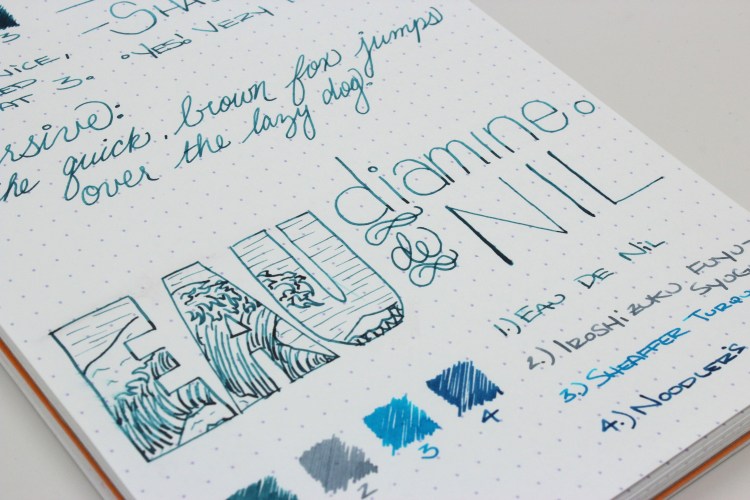 3
- SHA
NICE,
AT 3. ∘ YES! VEZY
the quick, brown fox jumps
over the lazy dog.
diamine.
EAU de NIL
1) EAU DE NIL
2.) IROSHIZUKU FUYU
SYOG
3.) SHEAFFER TURQU
4.) NOODLER'S
4
3
2